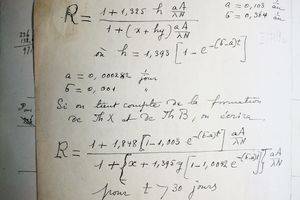 R = 1 + 1,325 h aA/λN / 1 + (x + hy) aA/λN
a = 0,103
б = 0,364
où h = 1,393 [1 - e^-(б-a)t]
a = 0,000282 1/jour
б = 0,001 "
Si on tient compte de la formation
de Th X et de Th B, on écrira
R = 1 + 1,848 [1 - 1,003 e^-(б-a)t] aA/λN / 1 + {x + 1,395 y [1 - 1,0092 e^-(б-a)t]} aA/λN
pour t > 30 jours